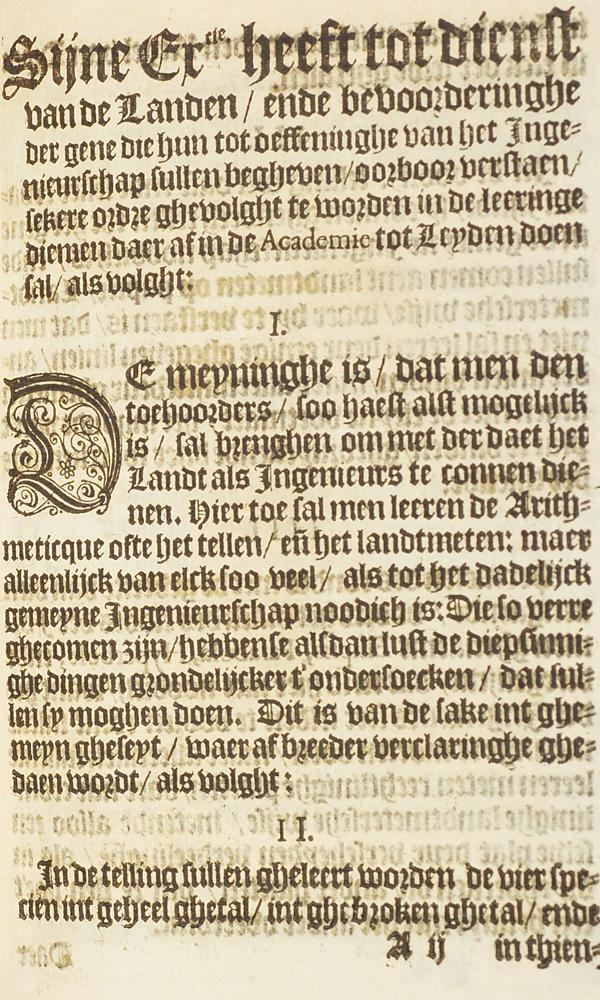 Sijne Ex.tie heeft tot dienst
van de Landen / ende bevoorderinghe
der gene die hun tot oeffeninghe van het Inge-
nieurschap sullen begheven / oorboor verstaen /
sekere ordre ghevolght te worden in de leeringe
diemen daer af in de Academie tot Leyden doen
sal / als volght:
I.
DE meyninghe is / dat men den
toehoorders / soo haest alst mogelijck
is / sal brenghen om met der daet het
Landt als Ingenieurs te connen die-
nen. Hier toe sal men leeren de Arith-
meticque ofte het tellen / eñ het landtmeten: maer
alleenlijck van elck soo veel / als tot het dadelijck
gemeyne Ingenieurschap noodich is: Die so verre
ghecomen zijn / hebbense alsdan lust de diepsinni-
ghe dingen grondelijcker t'ondersoecken / dat sul-
len sy moghen doen. Dit is van de sake int ghe-
meyn gheseyt / waer af breeder verclaringhe ghe-
daen wordt / als volght:
II.
In de telling sullen gheleert worden de vier spe-
cien int geheel ghetal / int ghebroken ghetal / ende
A ij in thien-